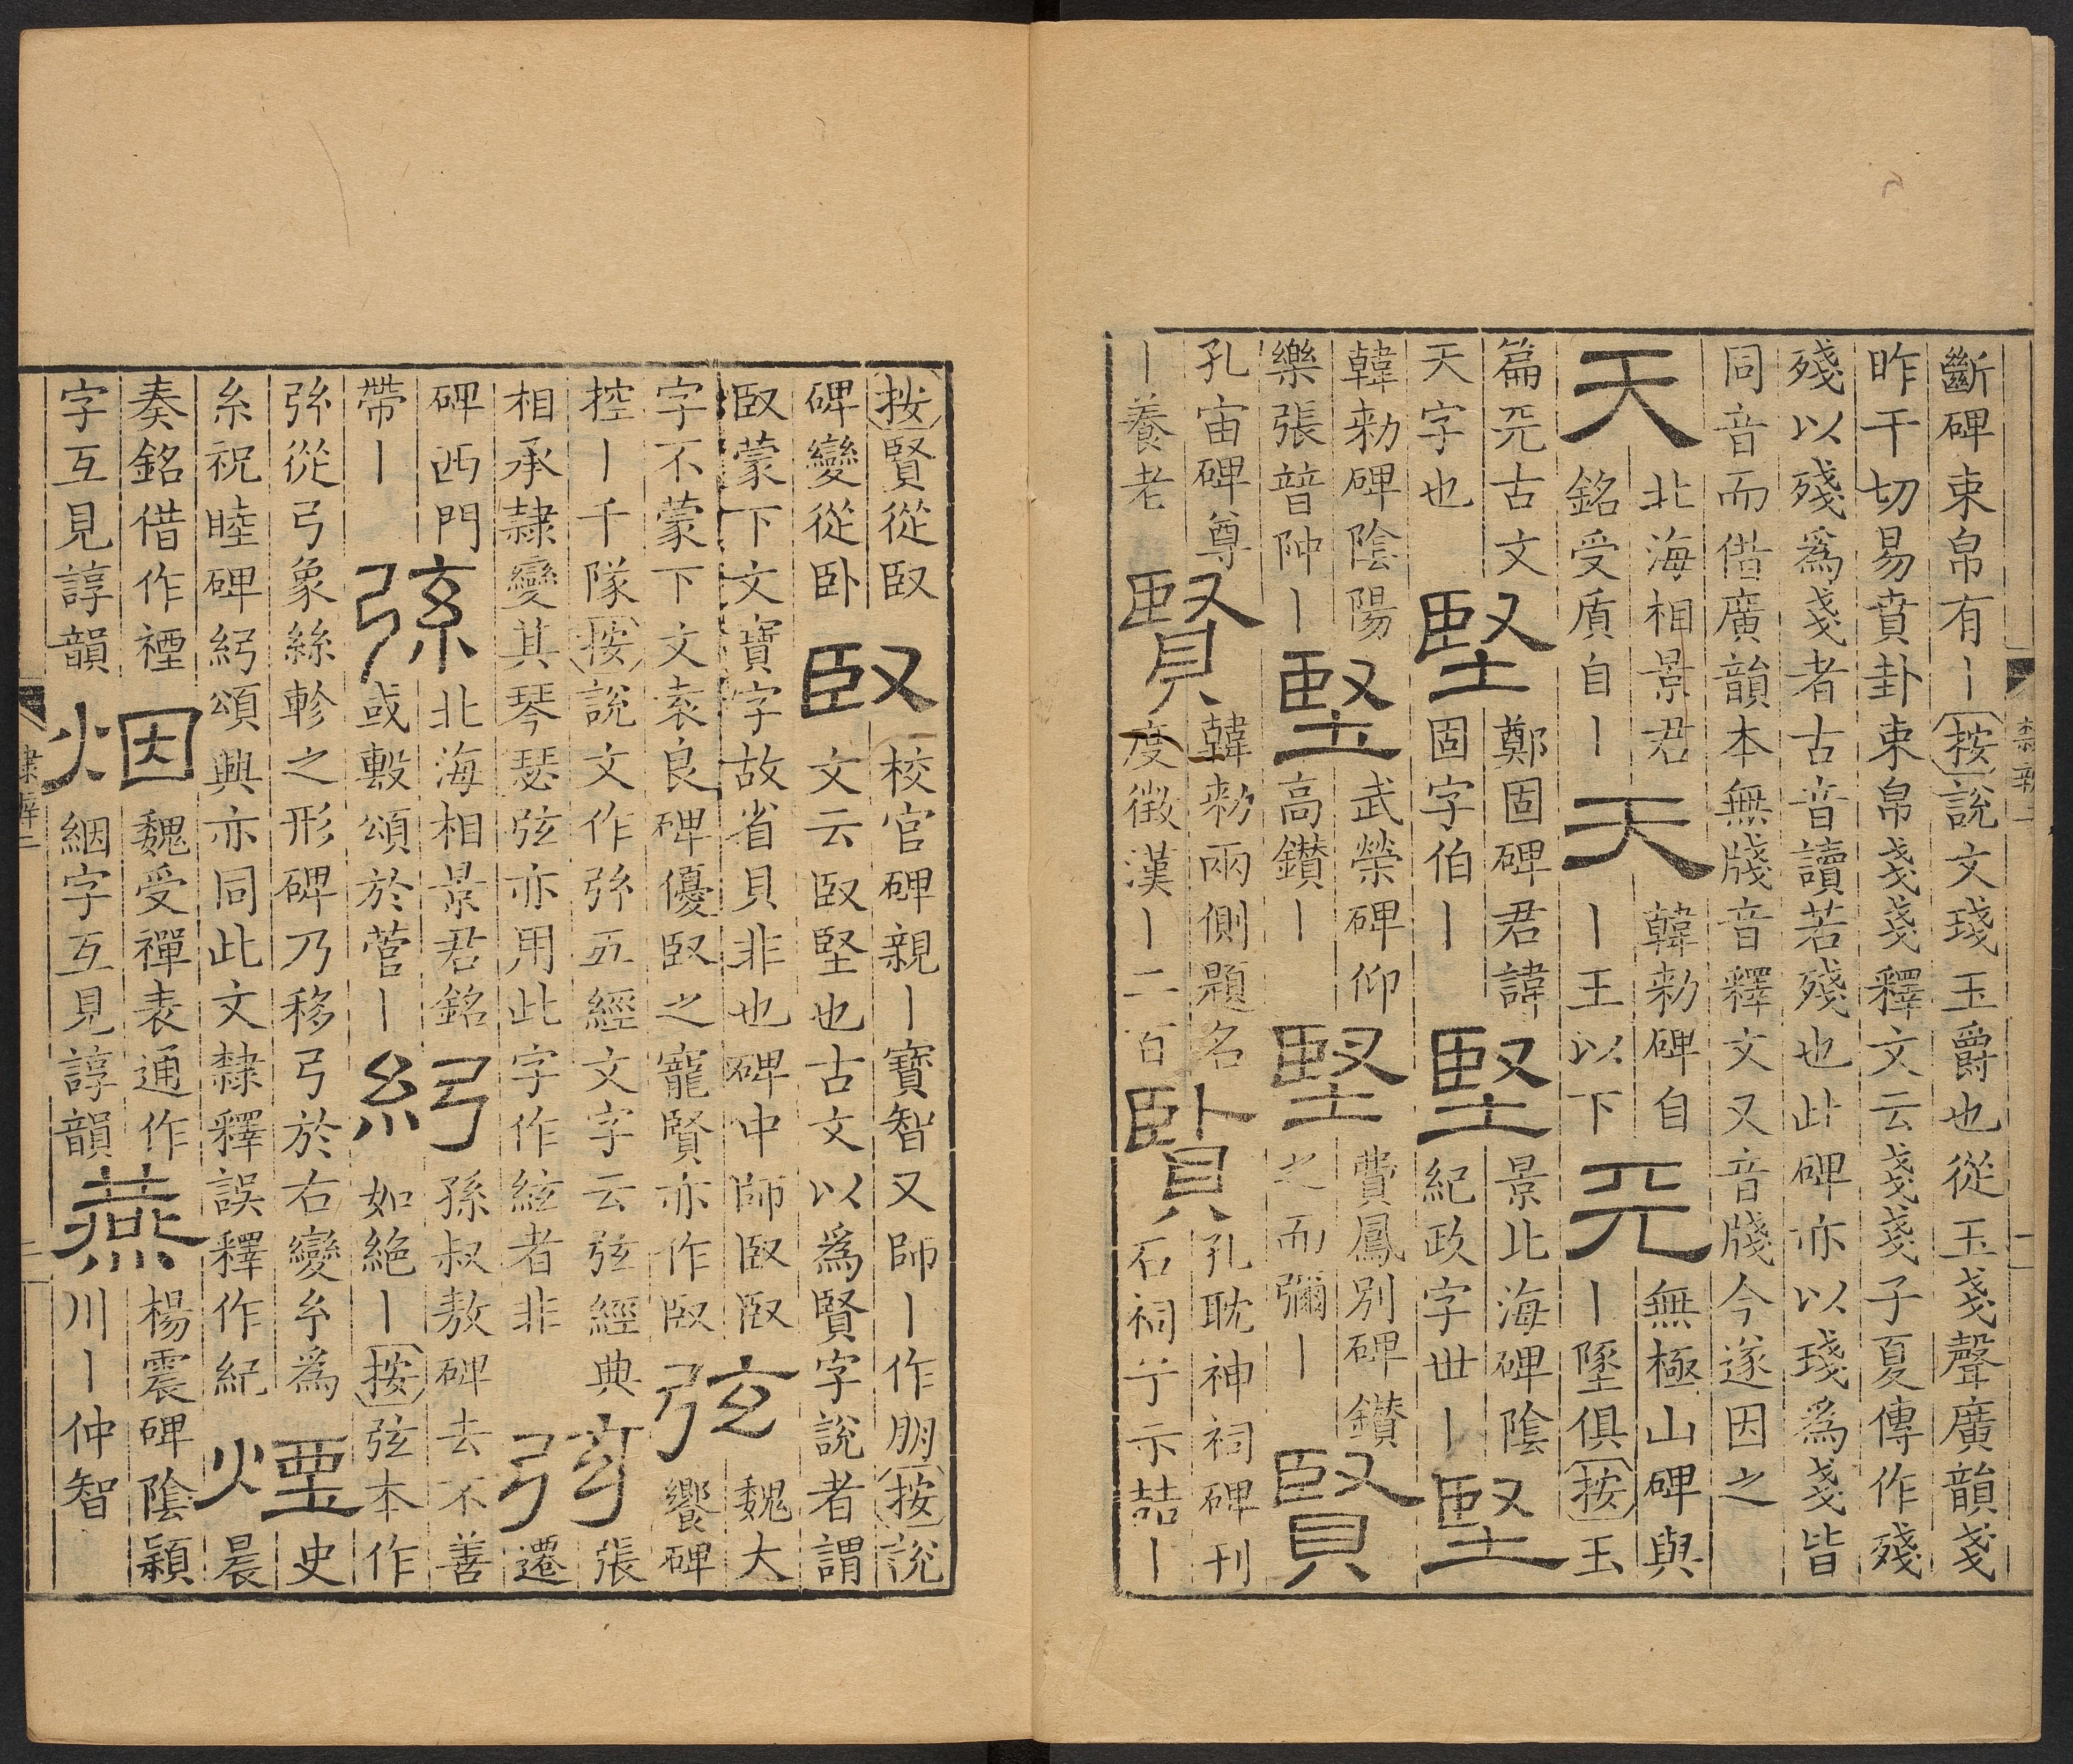 斷碑束帛有丨按說文琖玉爵也從玉戔聲廣韻戔
昨干切易賁卦束帛戔戔釋文云戔戔子夏傳作殘
殘以殘爲戔者古音讀若殘也此碑亦以琖爲戔皆
同音而借廣韻本無牋音釋文又音牋今遂因之
天
北海相景君
銘受盾自丨
天
韓勑碑自
丨王以下
兲
無極山碑與
丨墬俱按玉
篇兲古文
天字也
堅
鄭固碑君諱
固字伯丨
堅
景北海碑陰
紀政字世丨
堅
韓勑碑陰陽
樂張普仲丨
堅
武榮碑仰
高鑚丨
堅
費鳳別碑鑚
之而彌丨
賢
孔宙碑尊
丨養老
賢
韓勑兩側題名
度徵漢丨二百
賢
孔耽神祠碑刊
石祠兮示喆丨
按賢從臤
碑變從卧
臤
校官碑親丨寶智又師丨作朋按說
文云臤堅也古文以爲賢字說者謂
臤蒙下文寶字故省貝非也碑中師臤臤
字不蒙下文袁良碑優臤之寵賢亦作臤
弦
魏大
饗碑
控丨千隊按說文作弦五經文字云弦經典
相承隸變其琴瑟弦亦用此字作絃者非
弦
張
遷
碑西門
帶丨
弦
北海相景君銘
或毄頌於菅丨
紭
孫叔敖碑去不善
如絶丨按弦本作
弦從弓象絲軫之形碑乃移弓於右變糸爲
糸祝睦碑紭頌興亦同此文隸釋誤釋作紀
煙
史
晨
奏銘借作禋
字互見諄韻
烟
魏受禪表通作
絪字互見諄韻
燕
楊震碑陰潁
川丨仲智